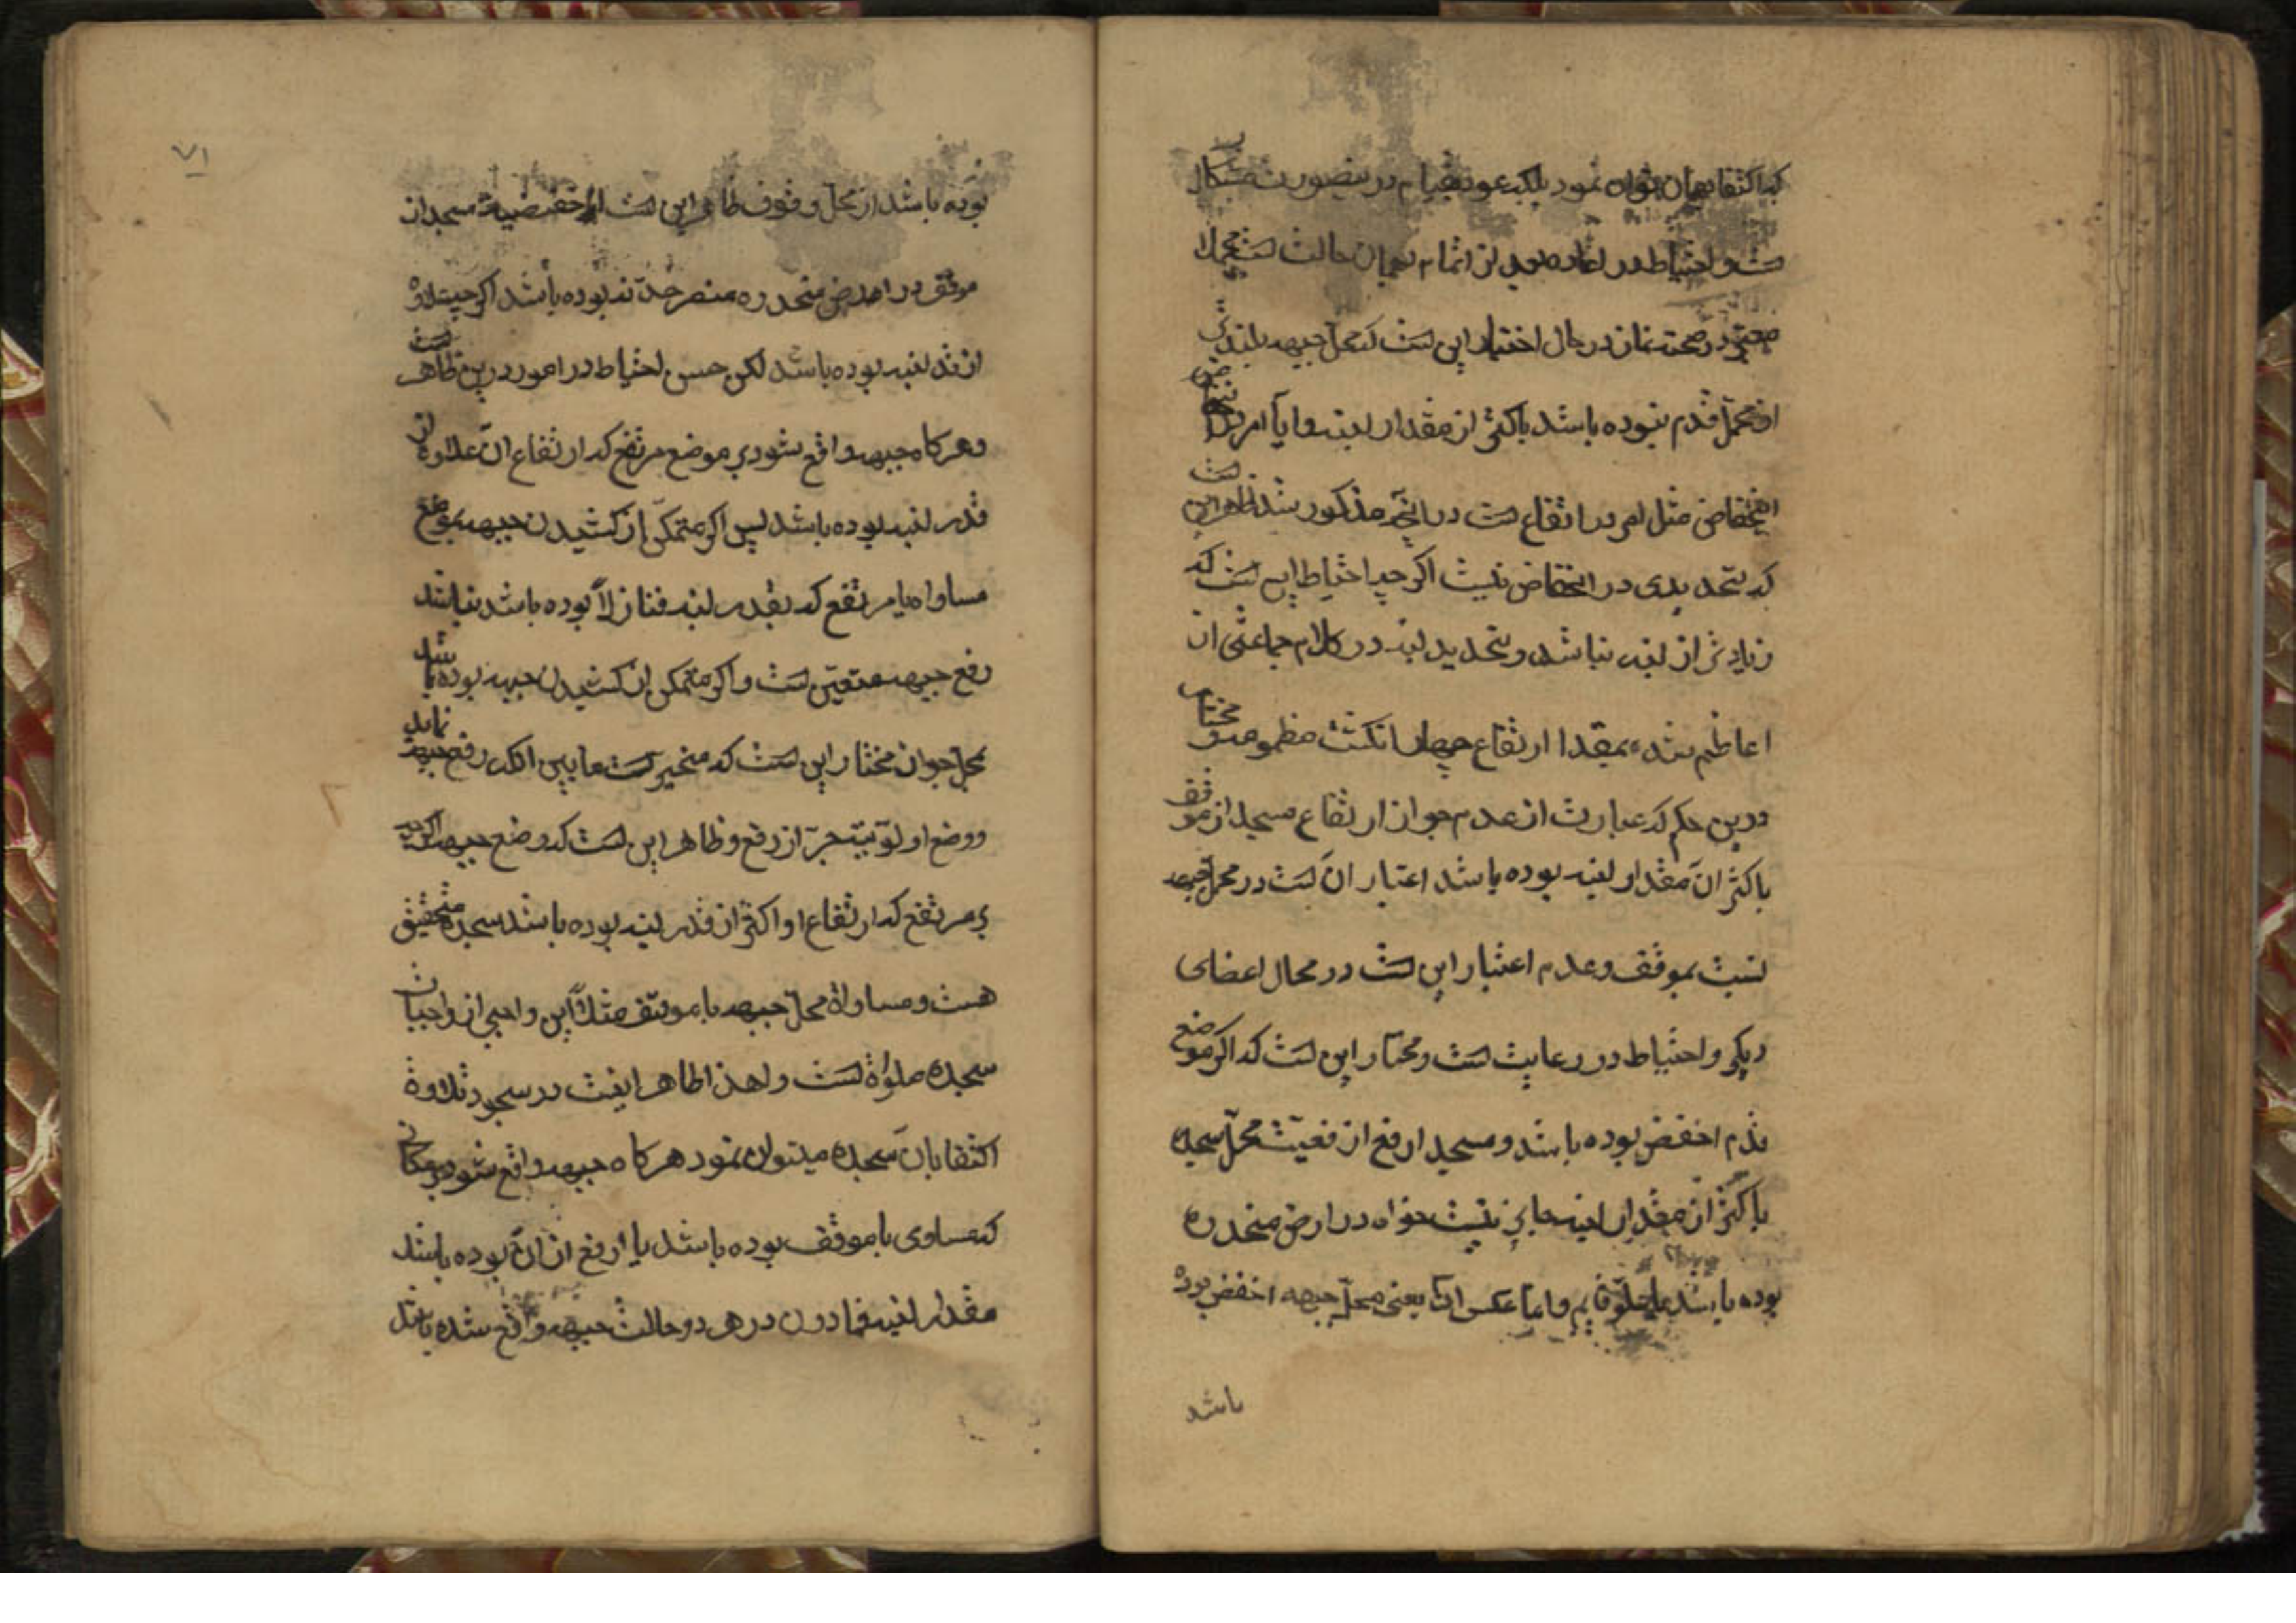 که اکتفا بهمان توان نمود بلکه عود بقیام درینصورت مشکل
است و احتیاط در اعاده بعد از اتمام بهمان حالت است مجملا
معتبر در صحت نماز در حال اختیار این است که محل جبهه بلندتر
از محل قدم نبوده باشد باکثر از مقدار لبنه و ایا امر در جانب
انخفاض مثل امر در ارتفاع است در انچه مذکور شد ظاهر این است
که تحدیدی در انخفاض نیست اکرچه احتیاط این است که
زیادتر از لبنه نباشد و تحدید لبنه در کلام جماعتی از
اعاظم شده بمقدار ارتفاع چهار انکشت مضمومه و مختار
درین حکم که عبارت از عدم جواز ارتفاع مسجد از موقف
باکثر از مقدار لبنه بوده باشد اعتبار ان است در محل جبهه
نسبت بموقف و عدم اعتبار این است در محال اعضای
دیکر و احتیاط در رعایت است و مختار این است که اکر موضع
قدم اخفض بوده باشد و مسجد ارفع ارفعیت محل سجده
باکثر از مقدار لبنه جایز نیست خواه در ارض منحدره
بوده باشد یا علو قایم و اما عکس ان یعنی محل جبهه اخفض بوده
باشد
۷۱
بوده باشد از محل وقوف ظاهر این است اخفضیة مسجد از
موقف در ارض منحدره مضر حد آن نبوده باشد اکرچه علاوه
از قدر لبنه بوده باشد لکن حسن احتیاط در امور درین ظاهر است
و هرکاه جبهه واقع شود بر موضع مرتفع که ارتفاع ان علاوه از
قدر لبنه بوده باشد پس اکر متمکن از کشیدن جبهه بموضع
مساواه یا مرتفع که بقدر لبنه فنازلاً بوده باشد نباشد
رفع جبهه متعین است و اکر متمکن از کشیدن جبهه بوده باشد
بمحل جواز مختار این است که مخیر است مابین انکه رفع جبهه نماید
و وضع اولویت جر از رفع و ظاهر این است که وضع جبهه اکرچه
بر مرتفع که ارتفاع او اکثر از قدر لبنه بوده باشد سجده متحقق
هست و مساواة محل جبهه با موقف مثلاً این واجبی از واجبات
سجده صلواة است و لهذا ظاهر اینست در سجود تلاوة
اکتفا بان سجده میتوان نمود هرکاه جبهه واقع شود بر مکانی
که مساوی با موقف بوده باشد یا ارفع از ان بوده باشد
مقدار لبنه فمادون در هر دو حالت جبهه واقع شده باشد